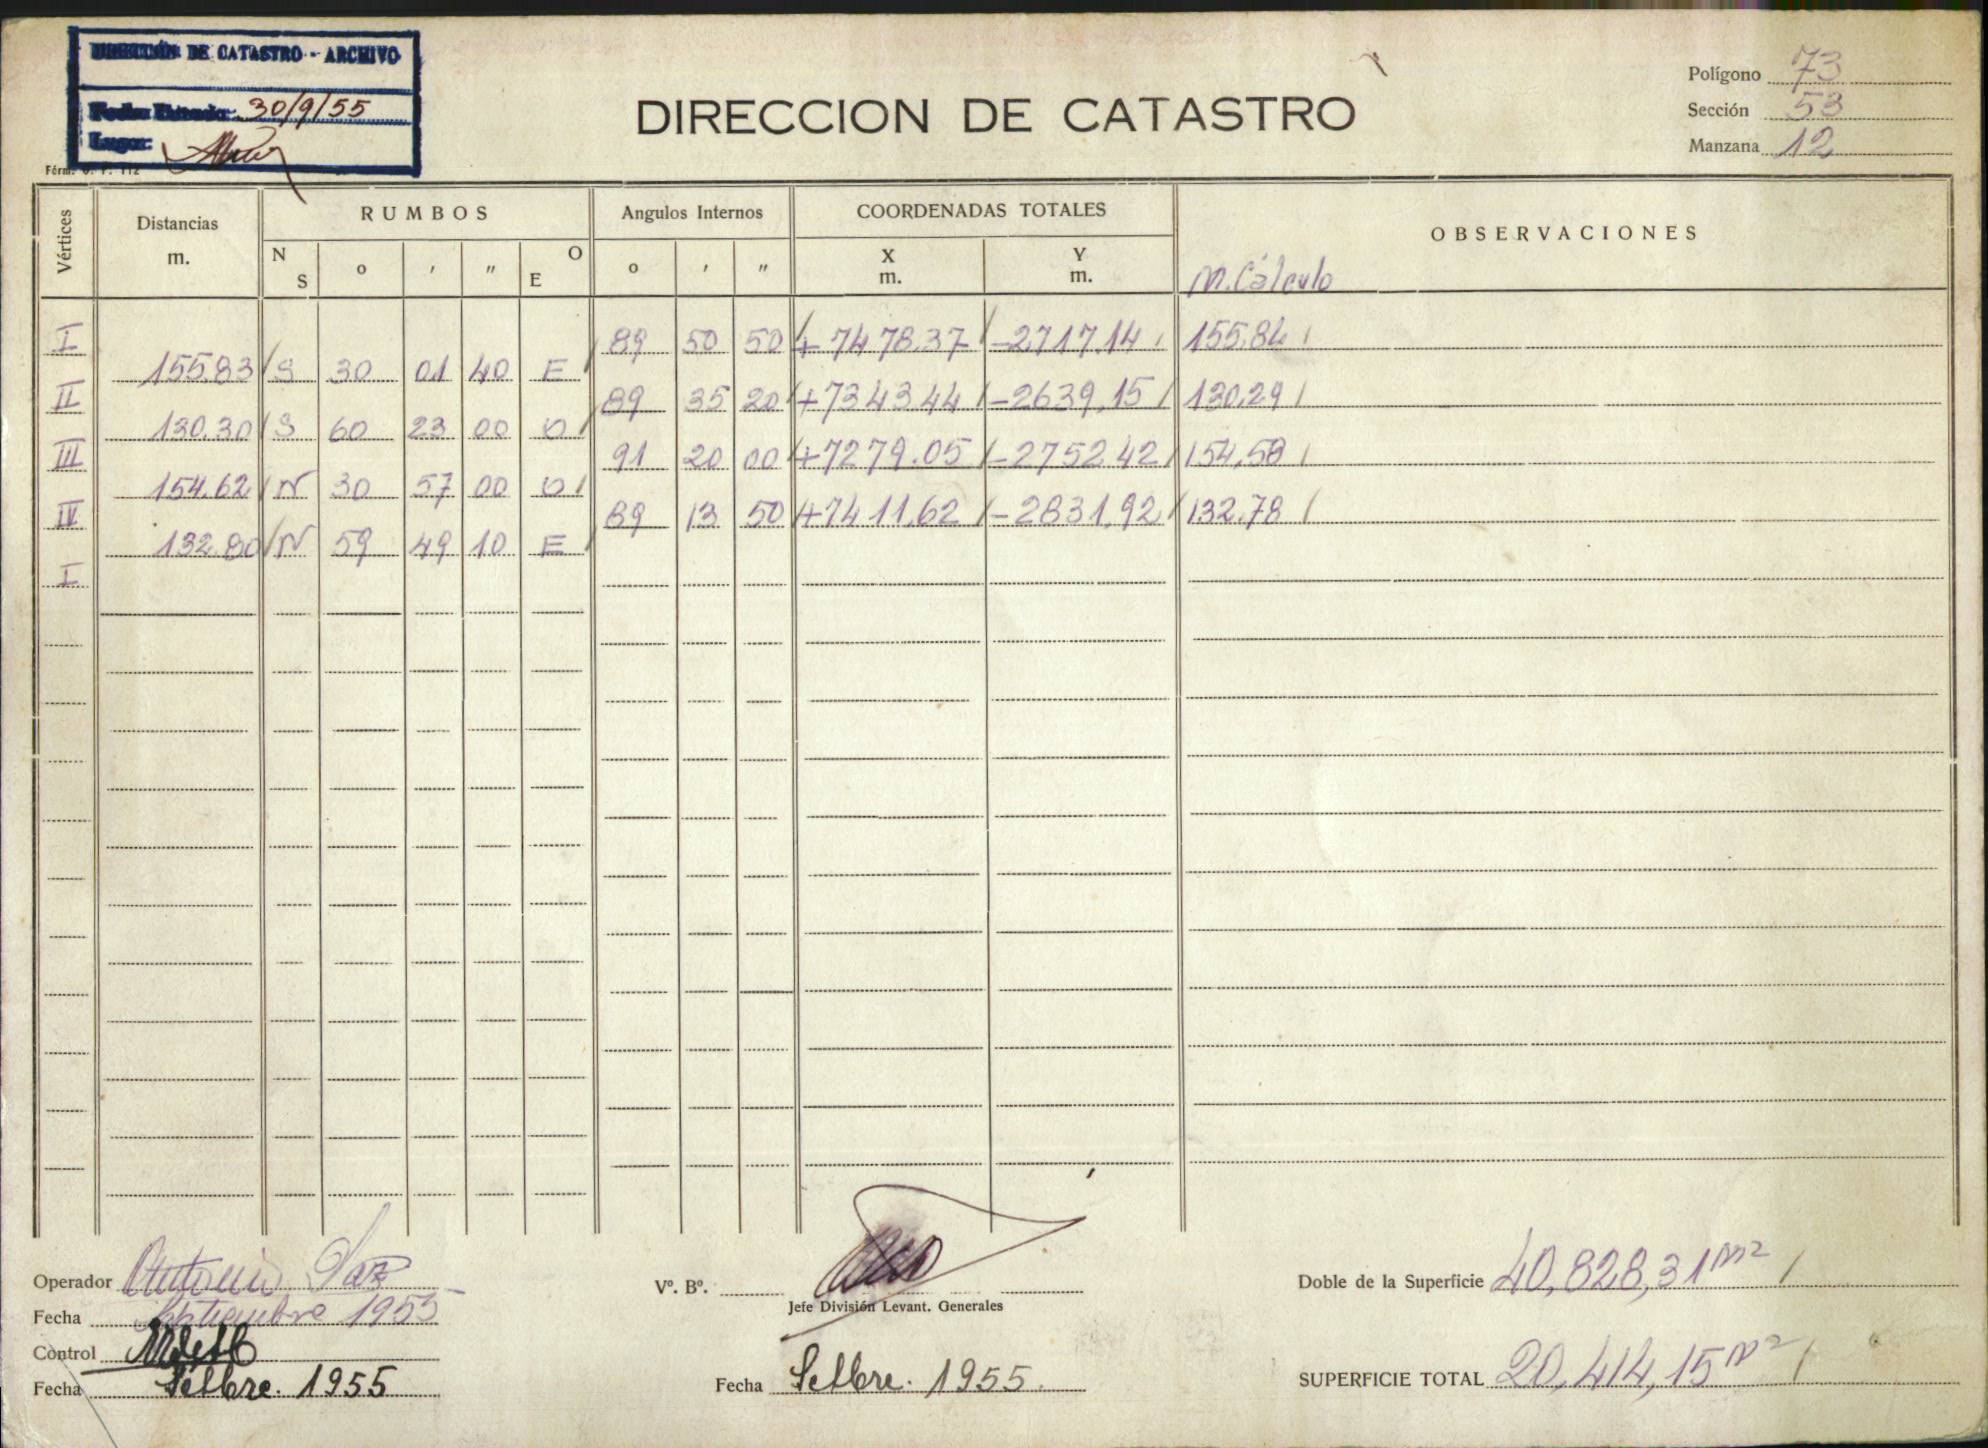 DIRECCIÓN DE CATASTRO - ARCHIVO
Fecha Entrada: 30/9/55
Lugar:
Fórm. C. P. 112
DIRECCION DE CATASTRO
Polígono 73
Sección 53
Manzana 12
Vértices Distancias m. RUMBOS Angulos Internos COORDENADAS TOTALES OBSERVACIONES
N S o ' " O E o ' " X m. Y m. M. Cálculo
I 89 50 50 +7478.37 -2717.14 155.84
155.83 S 30 01 40 E
II 89 35 20 +7343.44 -2639,15 130,29
130.30 S 60 23 00 O
III 91 20 00 +7279.05 -2752.42 154,58
154.62 N 30 57 00 O
IV 89 13 50 +7411,62 -2831,92 132,78
132.80 N 59 49 10 E
I
Operador Antonio Paz
Fecha Septiembre 1955
Control
Fecha Setbre. 1955
Vº. Bº.
Jefe División Levant. Generales
Fecha Setbre. 1955.
Doble de la Superficie 40,828,31 m²
SUPERFICIE TOTAL 20,414,15 m²